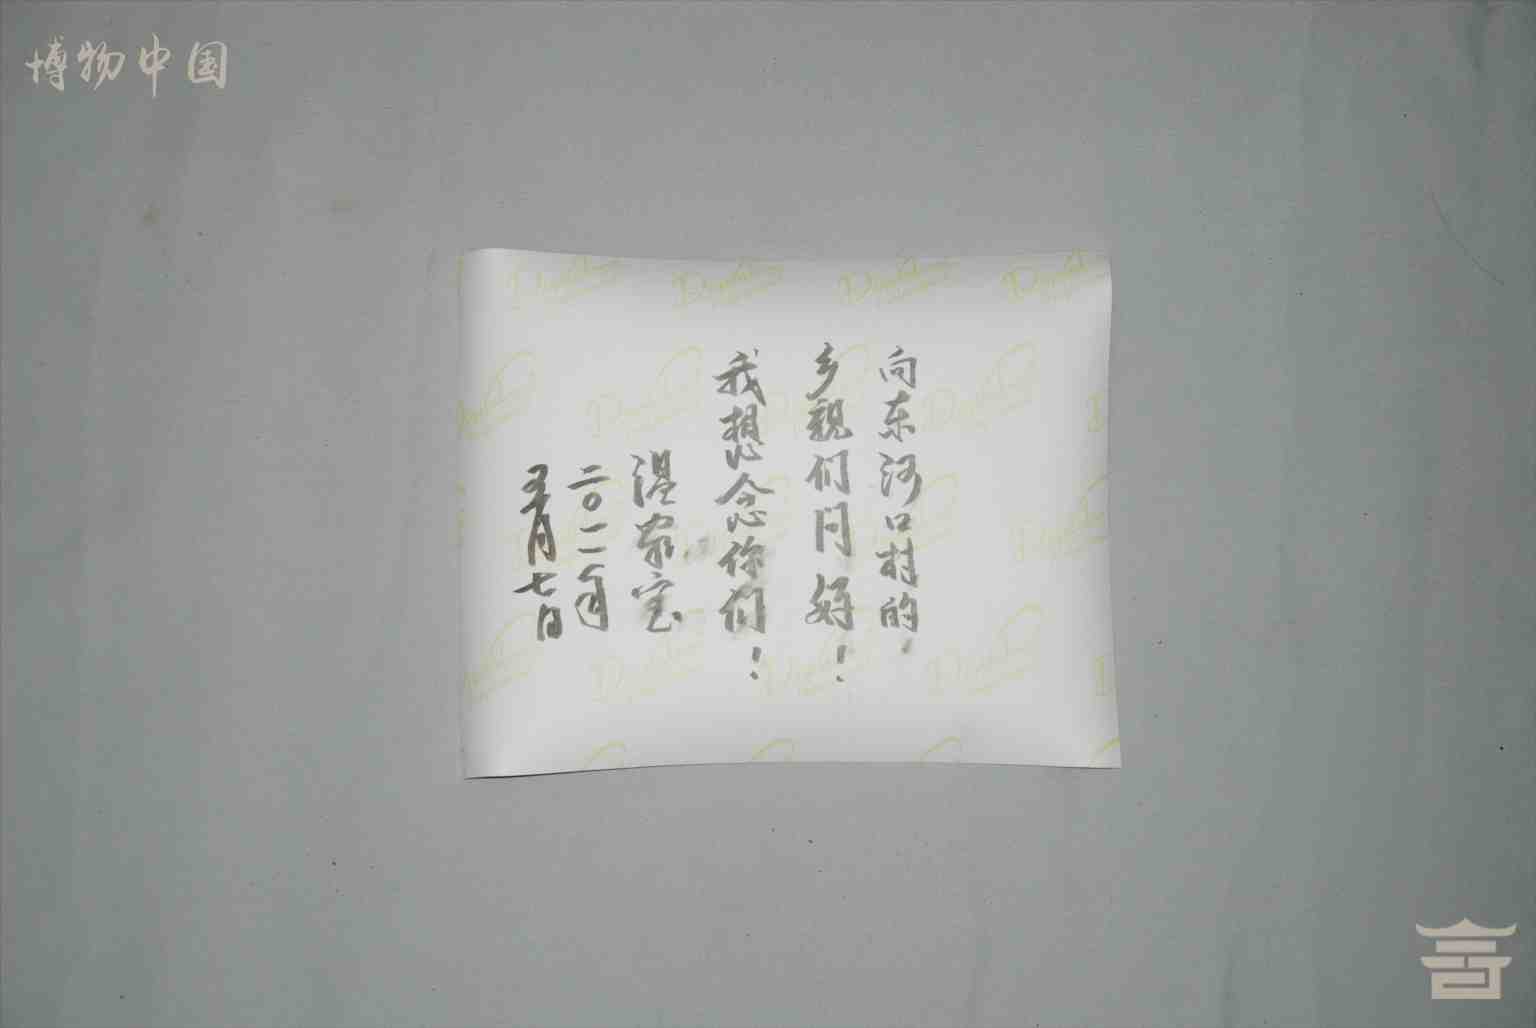 博物中国
向东河口村的
乡亲们问好！
我想念你们！
温家宝
二〇一一年
五月七日